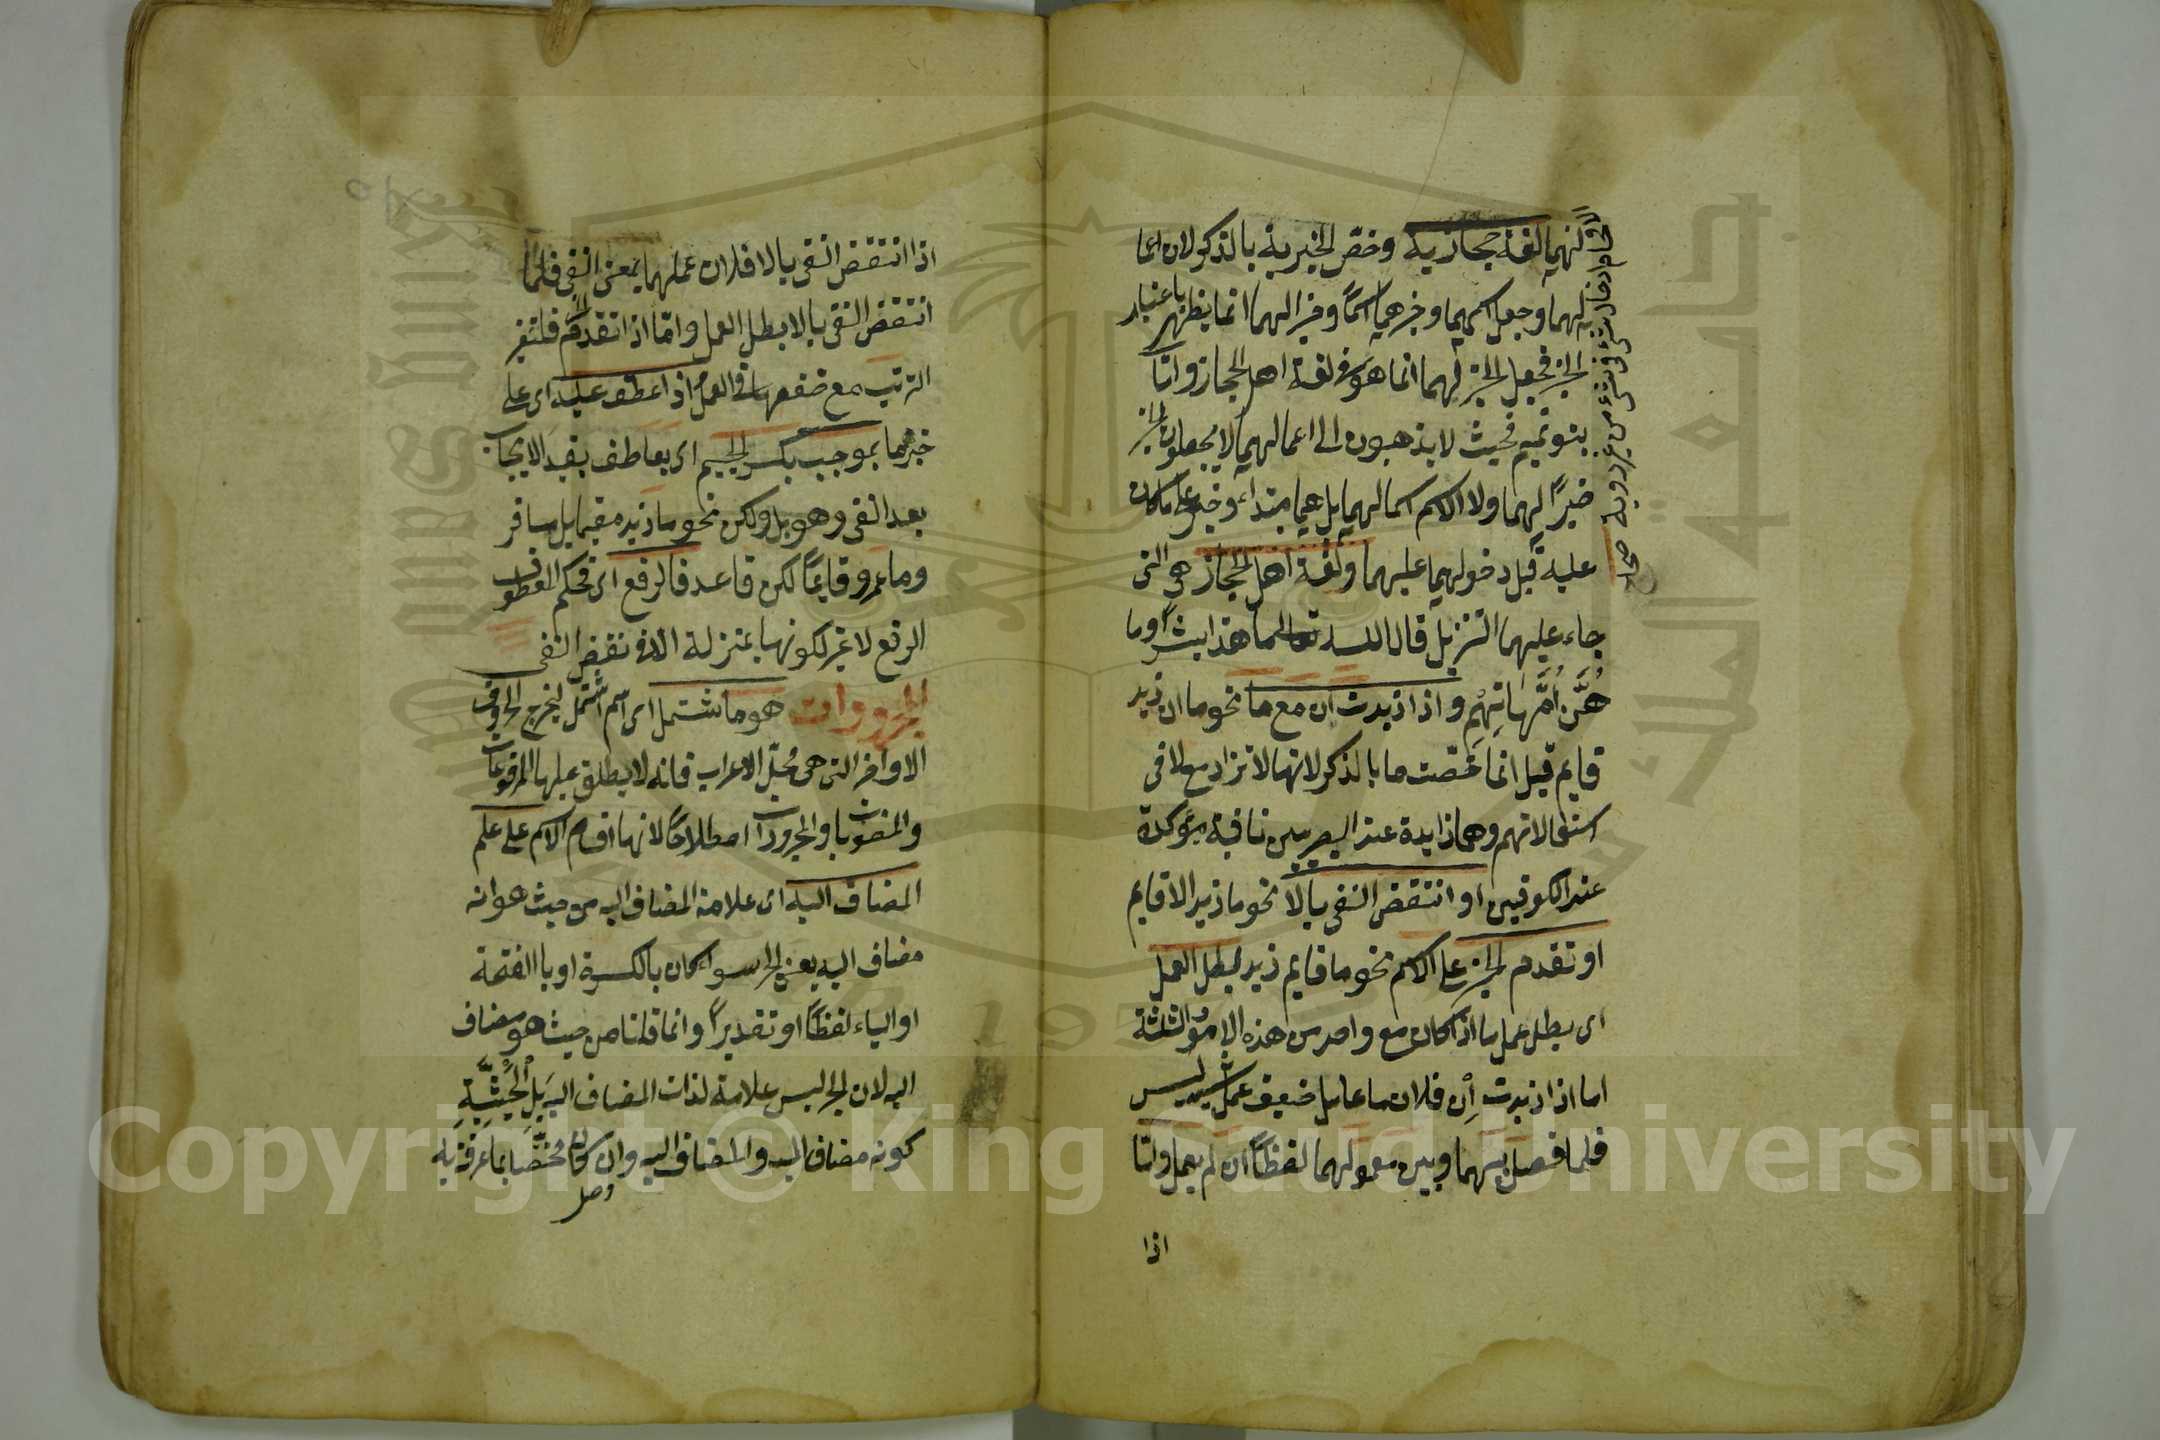 لهما لغة حجازية وخص الخبرية بالذكر لان اعما
لهما وجعل اسمهما وخبرهما اسمًا وخبرا لهما انما يظهر باعتبار
الخبر فجعل الخبر لهما انما هو في لغة اهل الحجاز واما
بنو تميم فحيث لا يذهبون الى اعمالهما لا يجعلون الخبر
خبرًا لهما ولا الاسم اسما لهما بل هما مبتداء وخبر على ما كان
عليه قبل دخولهما عليهما ولغة اهل الحجاز هي التي
جاء عليهما التنزيل قال الله تعالى ما هذا بشرًا وما
هُنَّ اُمَّهَاتِهِم واذا زيدت اِن مع ما نحو ما ان زيد
قايم قيل انما خصت ما بالذكر لانها لا تزاد مع لا في
استعمالاتهم وهي زايدة عند البصريين نافية مؤكدة
عند الكوفيين او انتقض النفي بالا نحو ما زيد الا قايم
او تقدم الخبر على الاسم نحو ما قايم زيد بطل العمل
اى بطل عمل ما اذا كان مع واحد من هذه الامور الثلثة
اما اذا زيدت اِن فلان ما عامل ضعيف عمل لشبه ليس
فلما فصل بينهما وبين معمولهما لفظًا ان لم يعمل واما
اذا
اذا انتقض النفي بالا فلان عملهما بمعنى النفي فلما
انتقض النفي بالا بطل العمل واما اذا تقدم الخبر فلتغير
الترتيب مع ضعفهما في العمل اذا عطف عليه اى على
خبرهما بموجب بكسر الجيم اى بعاطف يفيد الايجاب
بعد النفي وهو بل ولكن نحو ما زيد مقيما بل مسافر
وما عمرو قايمًا لكن قاعد فالرفع اى فحكم المعطوف
الرفع لا غير لكونهما بمنزلة الا في نقض النفي
المجرورات هو ما اشتمل اى اسم اشتمل ليخرج الحروف
الاواخر التي هي محل الاعراب فانه لا يطلق عليها المرفوعات
والمنصوبات والمجرورات اصطلاحًا لانها اقسام الاسم على علم
المضاف اليه اى علامة المضاف اليه من حيث هو انه
مضاف اليه يعني الجر سواء كان بالكسرة او بالفتحة
او الياء لفظًا او تقديرًا وانما قلنا من حيث هو مضاف
اليه لان الجر ليس علامة لذات المضاف اليه بَلْ لِحَيْثِيَّةِ
كونه مضافا اليه والمضاف اليه وان كان مختصًا بما عرفه به
Copyright © King Saud University